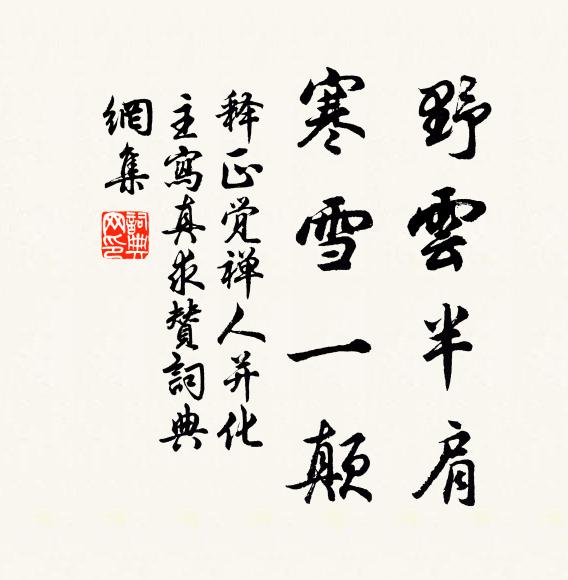 野雲半肩
寒雪一顛
释正觉禅人并化
主寫真求贊詞典
網集
詞典網印